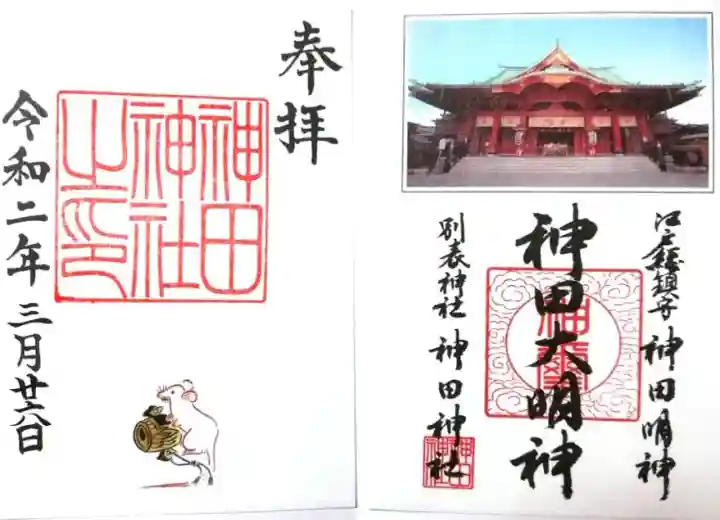 奉拝
神田
神社
之印
令和二年三月廿六日
江戸総鎮守 神田明神
神田大明神
神璽
別表神社 神田神社
神田
神社